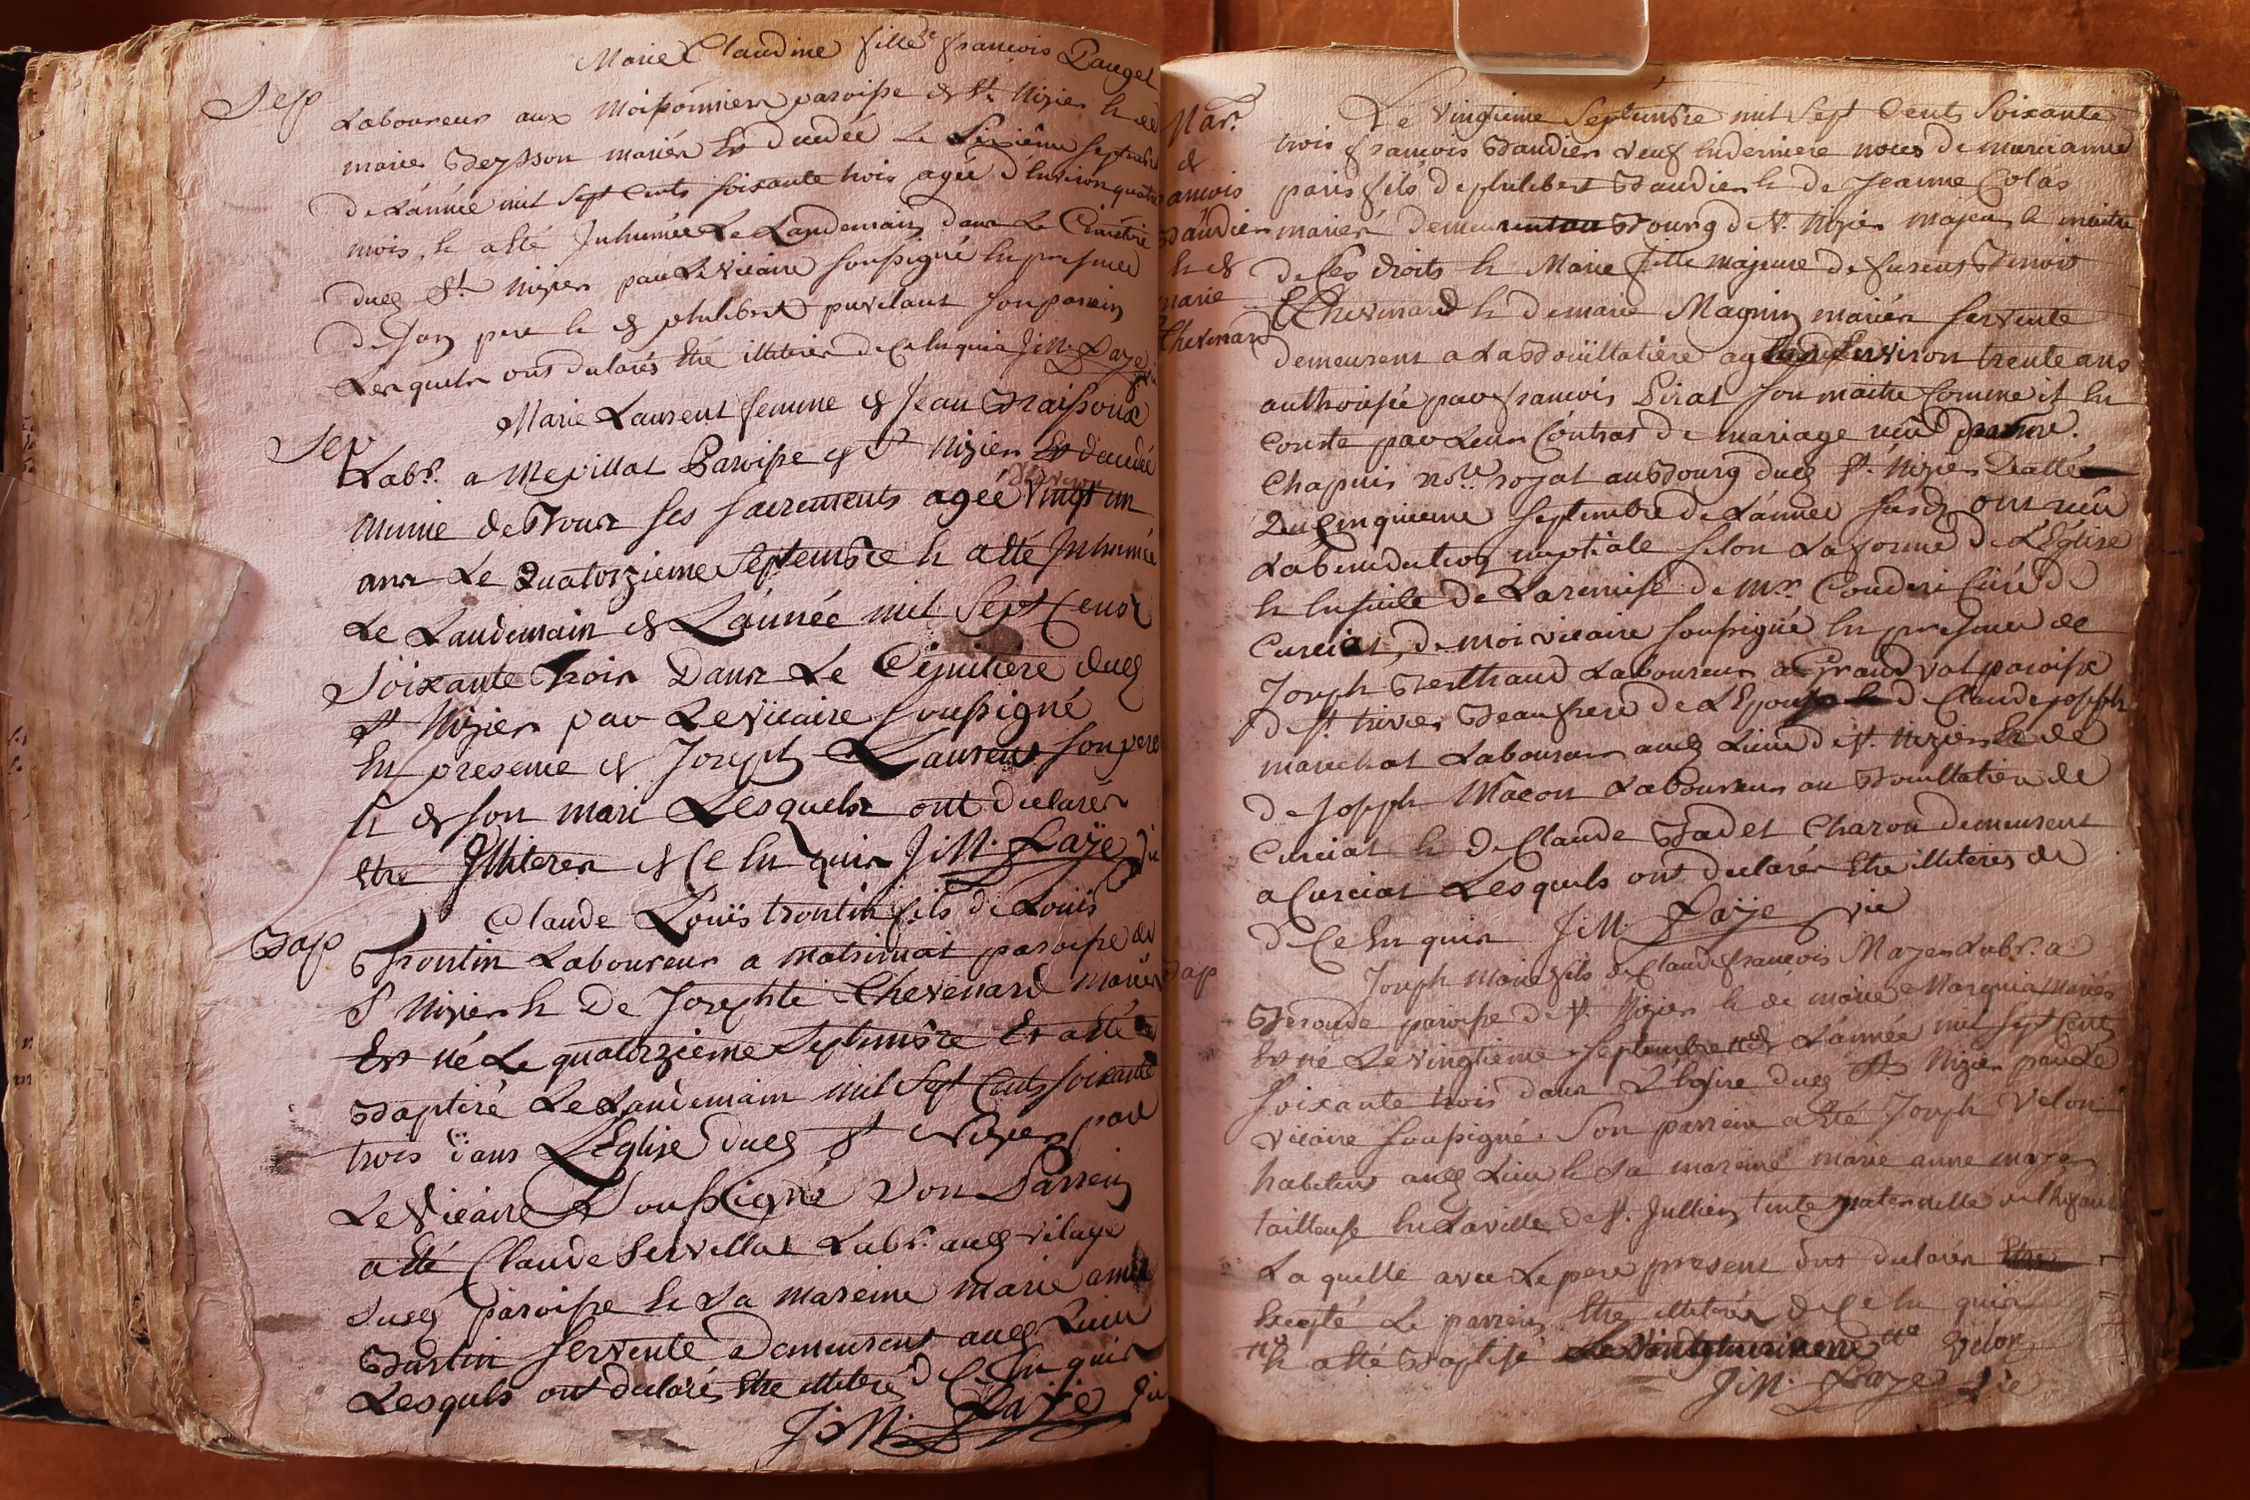 Marie Claudine fille de françois Pauget
Sep
Laboureur aux Moissonnier paroisse de St. Nizier & de
marie Beysson mariés Est decedée Le Sixième septembre
De Lánnée mil sept cents soixante trois agée d'Environ quatre
mois, & a Eté Inhumée Le Landemain dans Le Cimétiere
dud St. Nizier par Le vicaire soussigné En presence
de son pere & de philibert puvilant son parrein
Lesquels ont declarés Etre illiterés de Ce Enquis J: M. Laye vic
Marie Laurent femme de Jean Braissoud
Sep
Labr. a Mevillat Paroisse de St Nizier Est decedée
d'environ
munie de Tous ses sacrements agée vingt un
ans Le Quatorzieme Septembre & a Eté Inhumée
Le Landemain de Lánnée mil Sept Cens
Soixante Trois Dans Le Cimitiere dud
St Nizier par Le vicaire soussigné
En presence de Joseph Laurent son pere
& de son mari Lesquels ont declarés
Etre Illiterés de Ce Enquis J: M. Laye vic
Claude Loüis trontin fils de Loüis
Bap
Trontin Laboureur a matrinat paroisse de
St Nizier & De Josephte Chevenard mariés
Est né Le quatorzieme Septembre Et a Eté
Baptisé Le Landemain mil Sept Cents soixante
trois dans L'Eglise dud St Nizier par
Le Vicaire Soussigné Son Parrein
a Eté Claude Servillat Labr. aud vilage
dud paroisse & La mareine marie anne
Bartin servente Demeurent aud Lieu
Lesquels ont declaré Etre illiteré de Ce Enquis
J: M. Laye vic
Mar.
de
françois
Baudier
& de
marie
Chevenard
Le vingtieme Septembre mil Sept Cents Soixante
trois françois Baudier veuf En derniere noces de marie anne
paris fils de philibert Baudier & de Jeanne Colas
mariés demeurent au Bourg de St. Nizier majeur & maitre
de Ses droits & Marie fille majeure de furent Benoit
Chevenard & de marie Magnin mariés servente
demeurent a La Boüillatiere agée d'Environ trente ans
authorisée par françois Pirat son maitre Comme il En
Conste par Leur Cóntrat de mariage reçu
Chapuis nore. royal au Bourg dud St. Nizier Datté
Du Cinquieme septembre de Lánnée susd. ont reçu
La benediction nuptiale selon La forme de L'Eglise
& Ensuite de La remise de Mr. Couderi Curé de
Curciat, de moi vicaire soussigné En presence de
Joseph Berthaud Laboureur a Grand val paroisse
de St. trivier Beaufrere de L'Epouse & de Claude joseph
marechal Laboureur aud Lieu de St. Nizier & de
de Joseph Mâcon Laboureur au Bouillatier de
Curciat & de Claude Badet Charon demeurent
a Curciat Lesquels ont declarés Etre illiterés de
de Ce Enquis J: M. Laye vic
Bap
Joseph Marie fils de Claude françois Mayer Labr. a
Beraude paroisse de St. Nizier & de marie Marguin mariés
Est né Le vingtieme septembre de Lánnée mil sept Cents
Soixante trois dans L'Eglise dud St. Nizier par Le
vicaire soussigné. Son parrein a Eté Joseph Velon
habitant aud Lieu & Sa mareine marie anne mayer
tailleuse En La ville de St. Jullien tente paternelle de L'Enfant
La quelle avec Le pere present ont declarés
Excepté Le parrein Etre illiterés de Ce Enquis
& a Eté Baptisé Velon
J: M. Laye vic